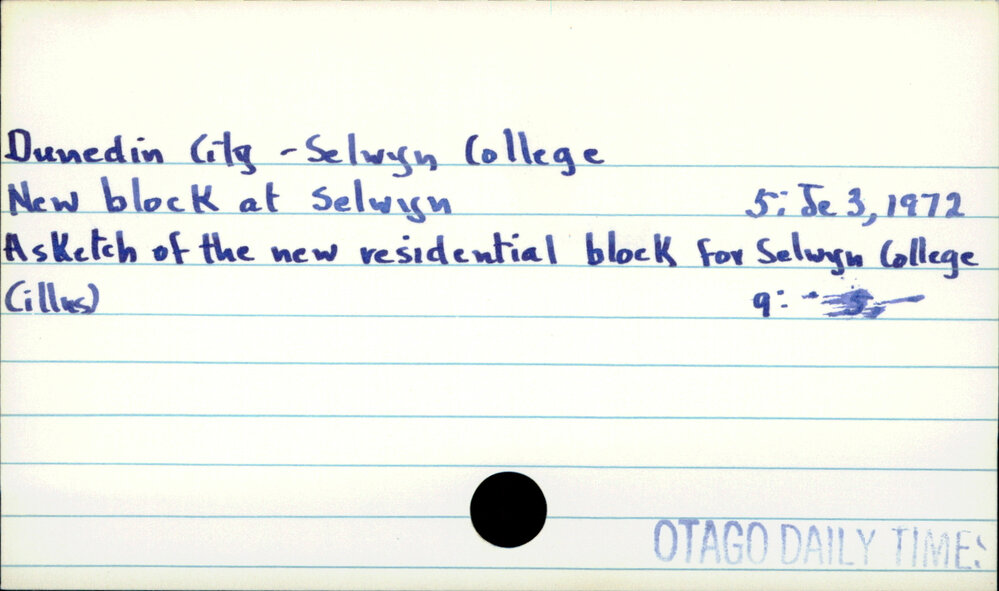 Dunedin City - Selwyn College
New block at Selwyn 5: Je 3, 1972
A sketch of the new residential block for Selwyn College
(illus) 9: -
OTAGO DAILY TIMES